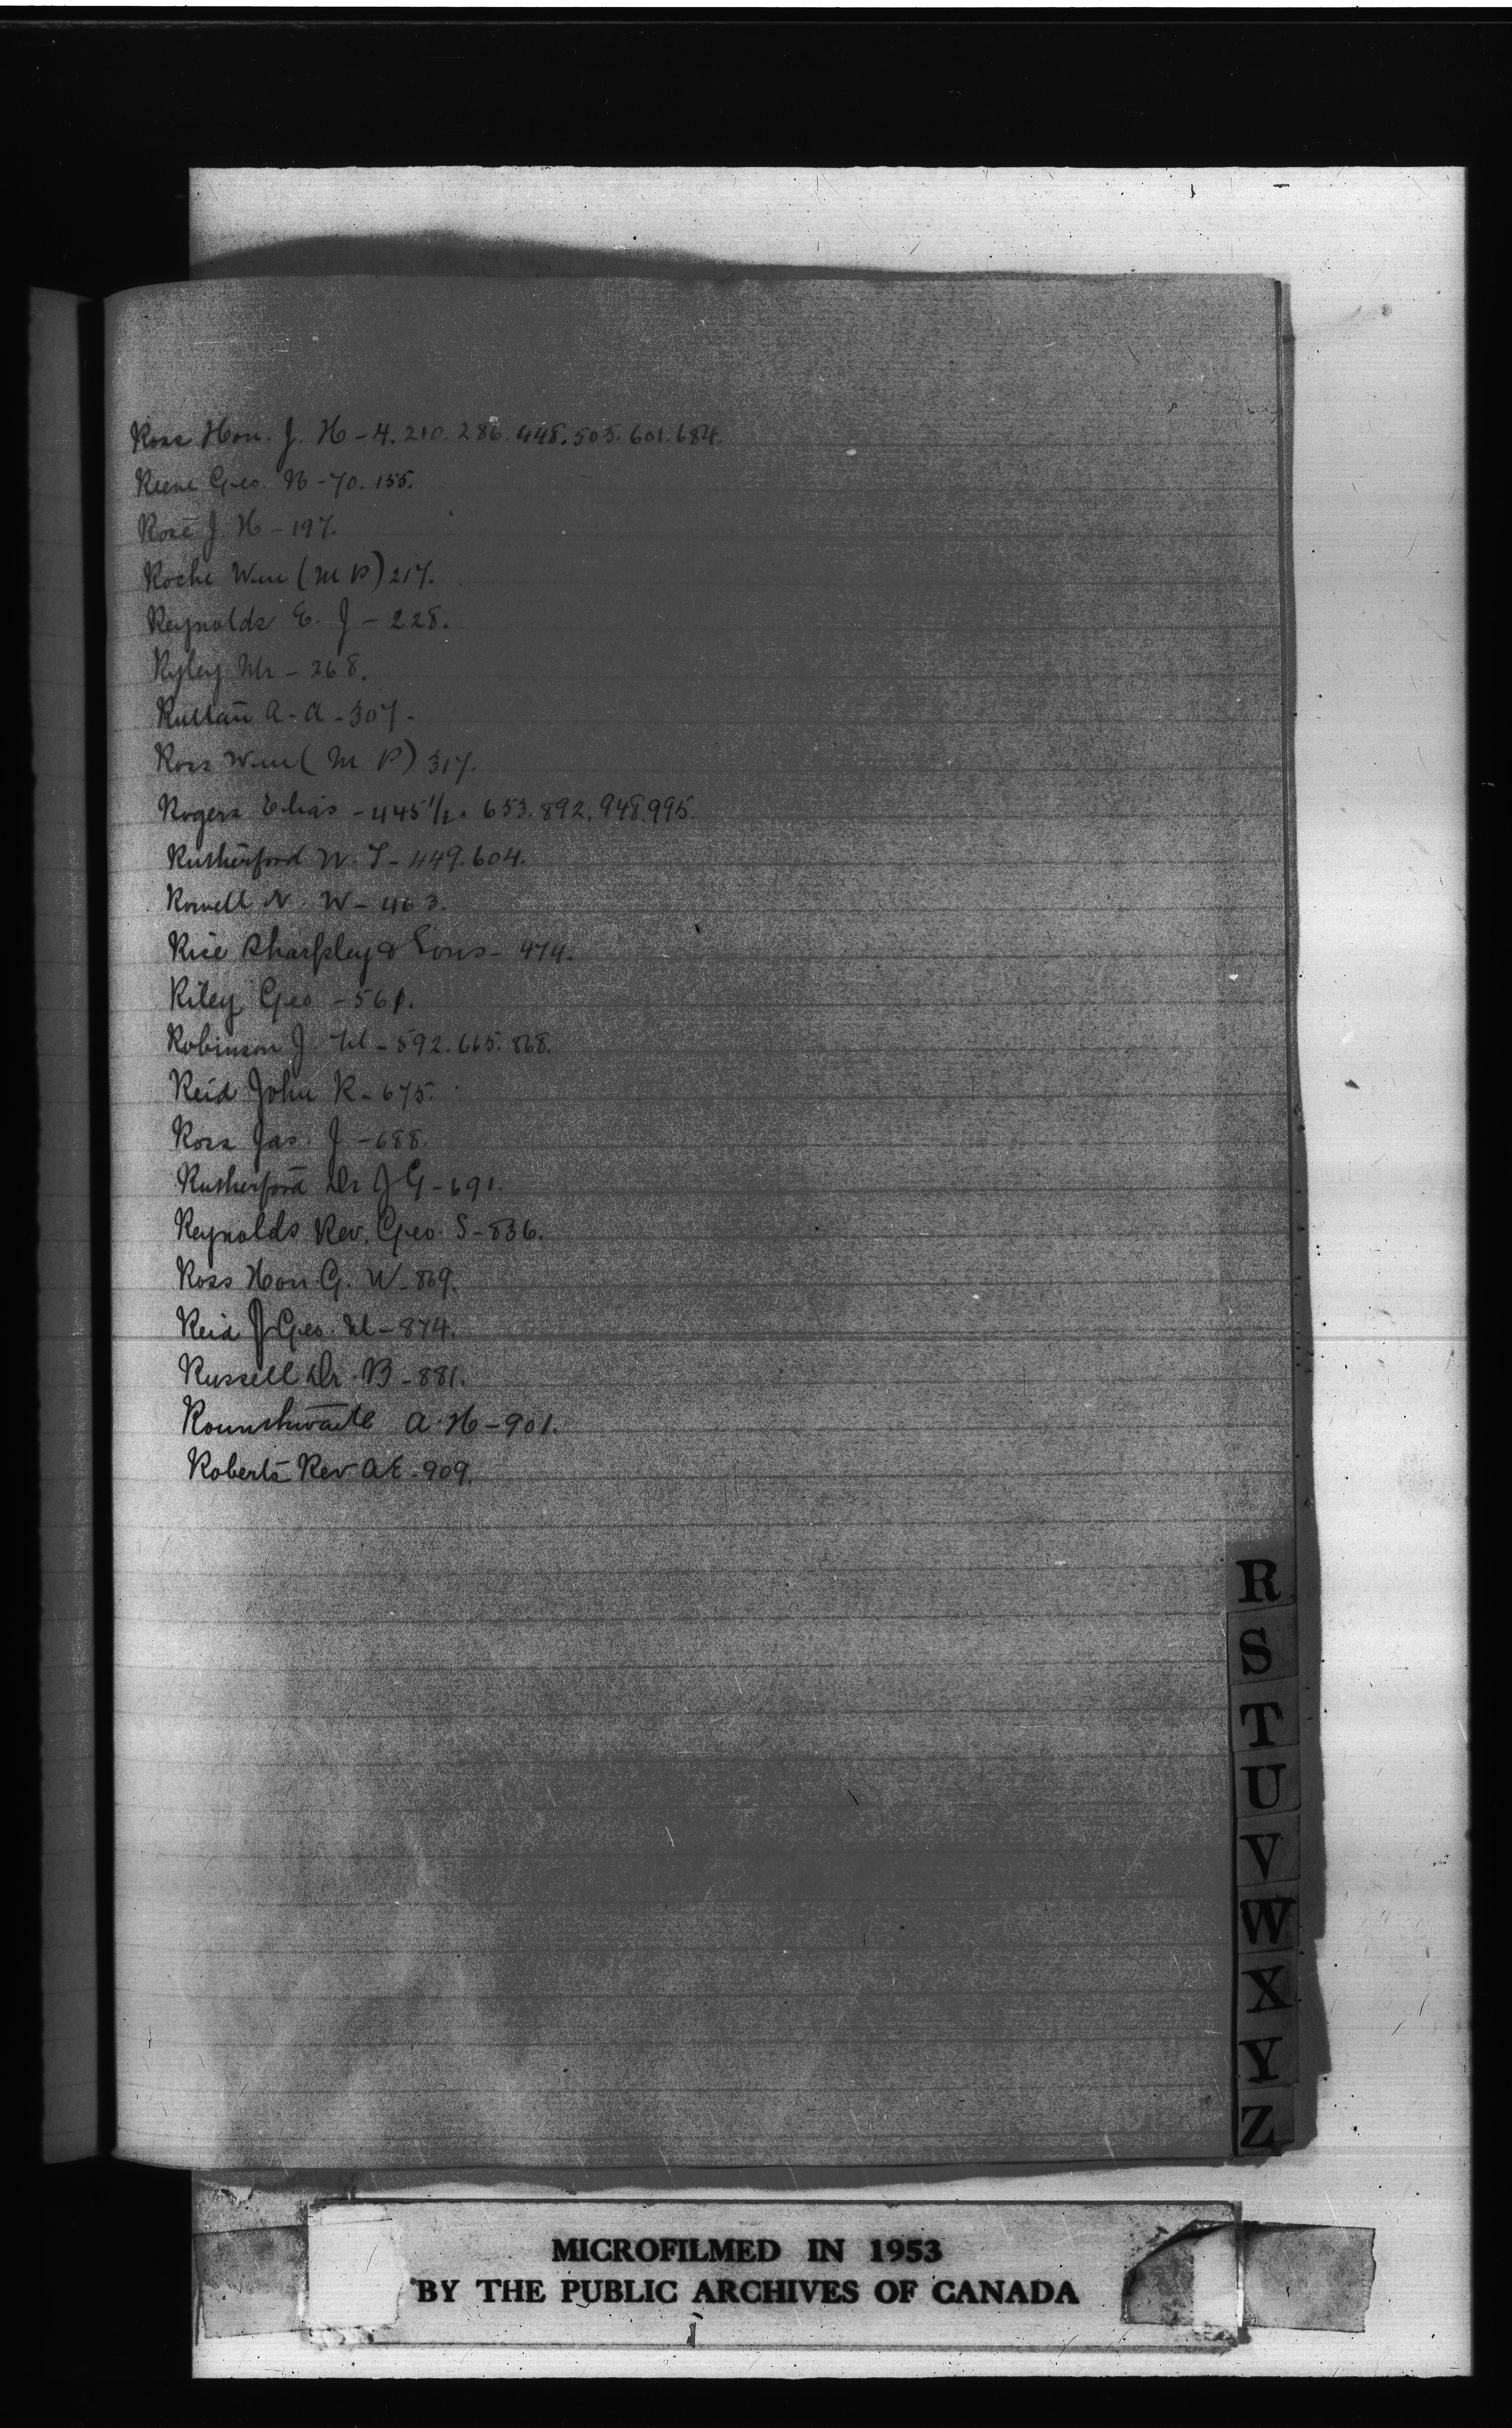 Ross Hon. J. H - 4. 210. 286. 448. 505. 601. 684.
Keene Geo. N - 70. 155.
Ross J H - 197.
Roche Wm (M P) 217.
Reynolds E. J - 228.
Ryley Mr - 268.
Ruttan A. A - 307.
Ross Wm (M P) 317.
Rogers Elias - 445 1/2. 653. 892. 948. 995.
Rutherford W. T - 449. 604.
Rowell N. W - 463.
Rice Sharpley & Sons - 474.
Riley Geo - 561.
Robinson J. M - 592. 665. 868.
Reid John R - 675.
Ross Jas. J - 688.
Rutherford Dr J G - 691.
Reynolds Rev. Geo. S - 836.
Ross Hon. G. W - 869.
Reid J Geo. M - 874.
Russell Dr. B - 881.
Rounthwaite A. H - 901.
Roberts Rev A E - 909.
R
S
T
U
V
W
X
Y
Z
MICROFILMED IN 1953
BY THE PUBLIC ARCHIVES OF CANADA